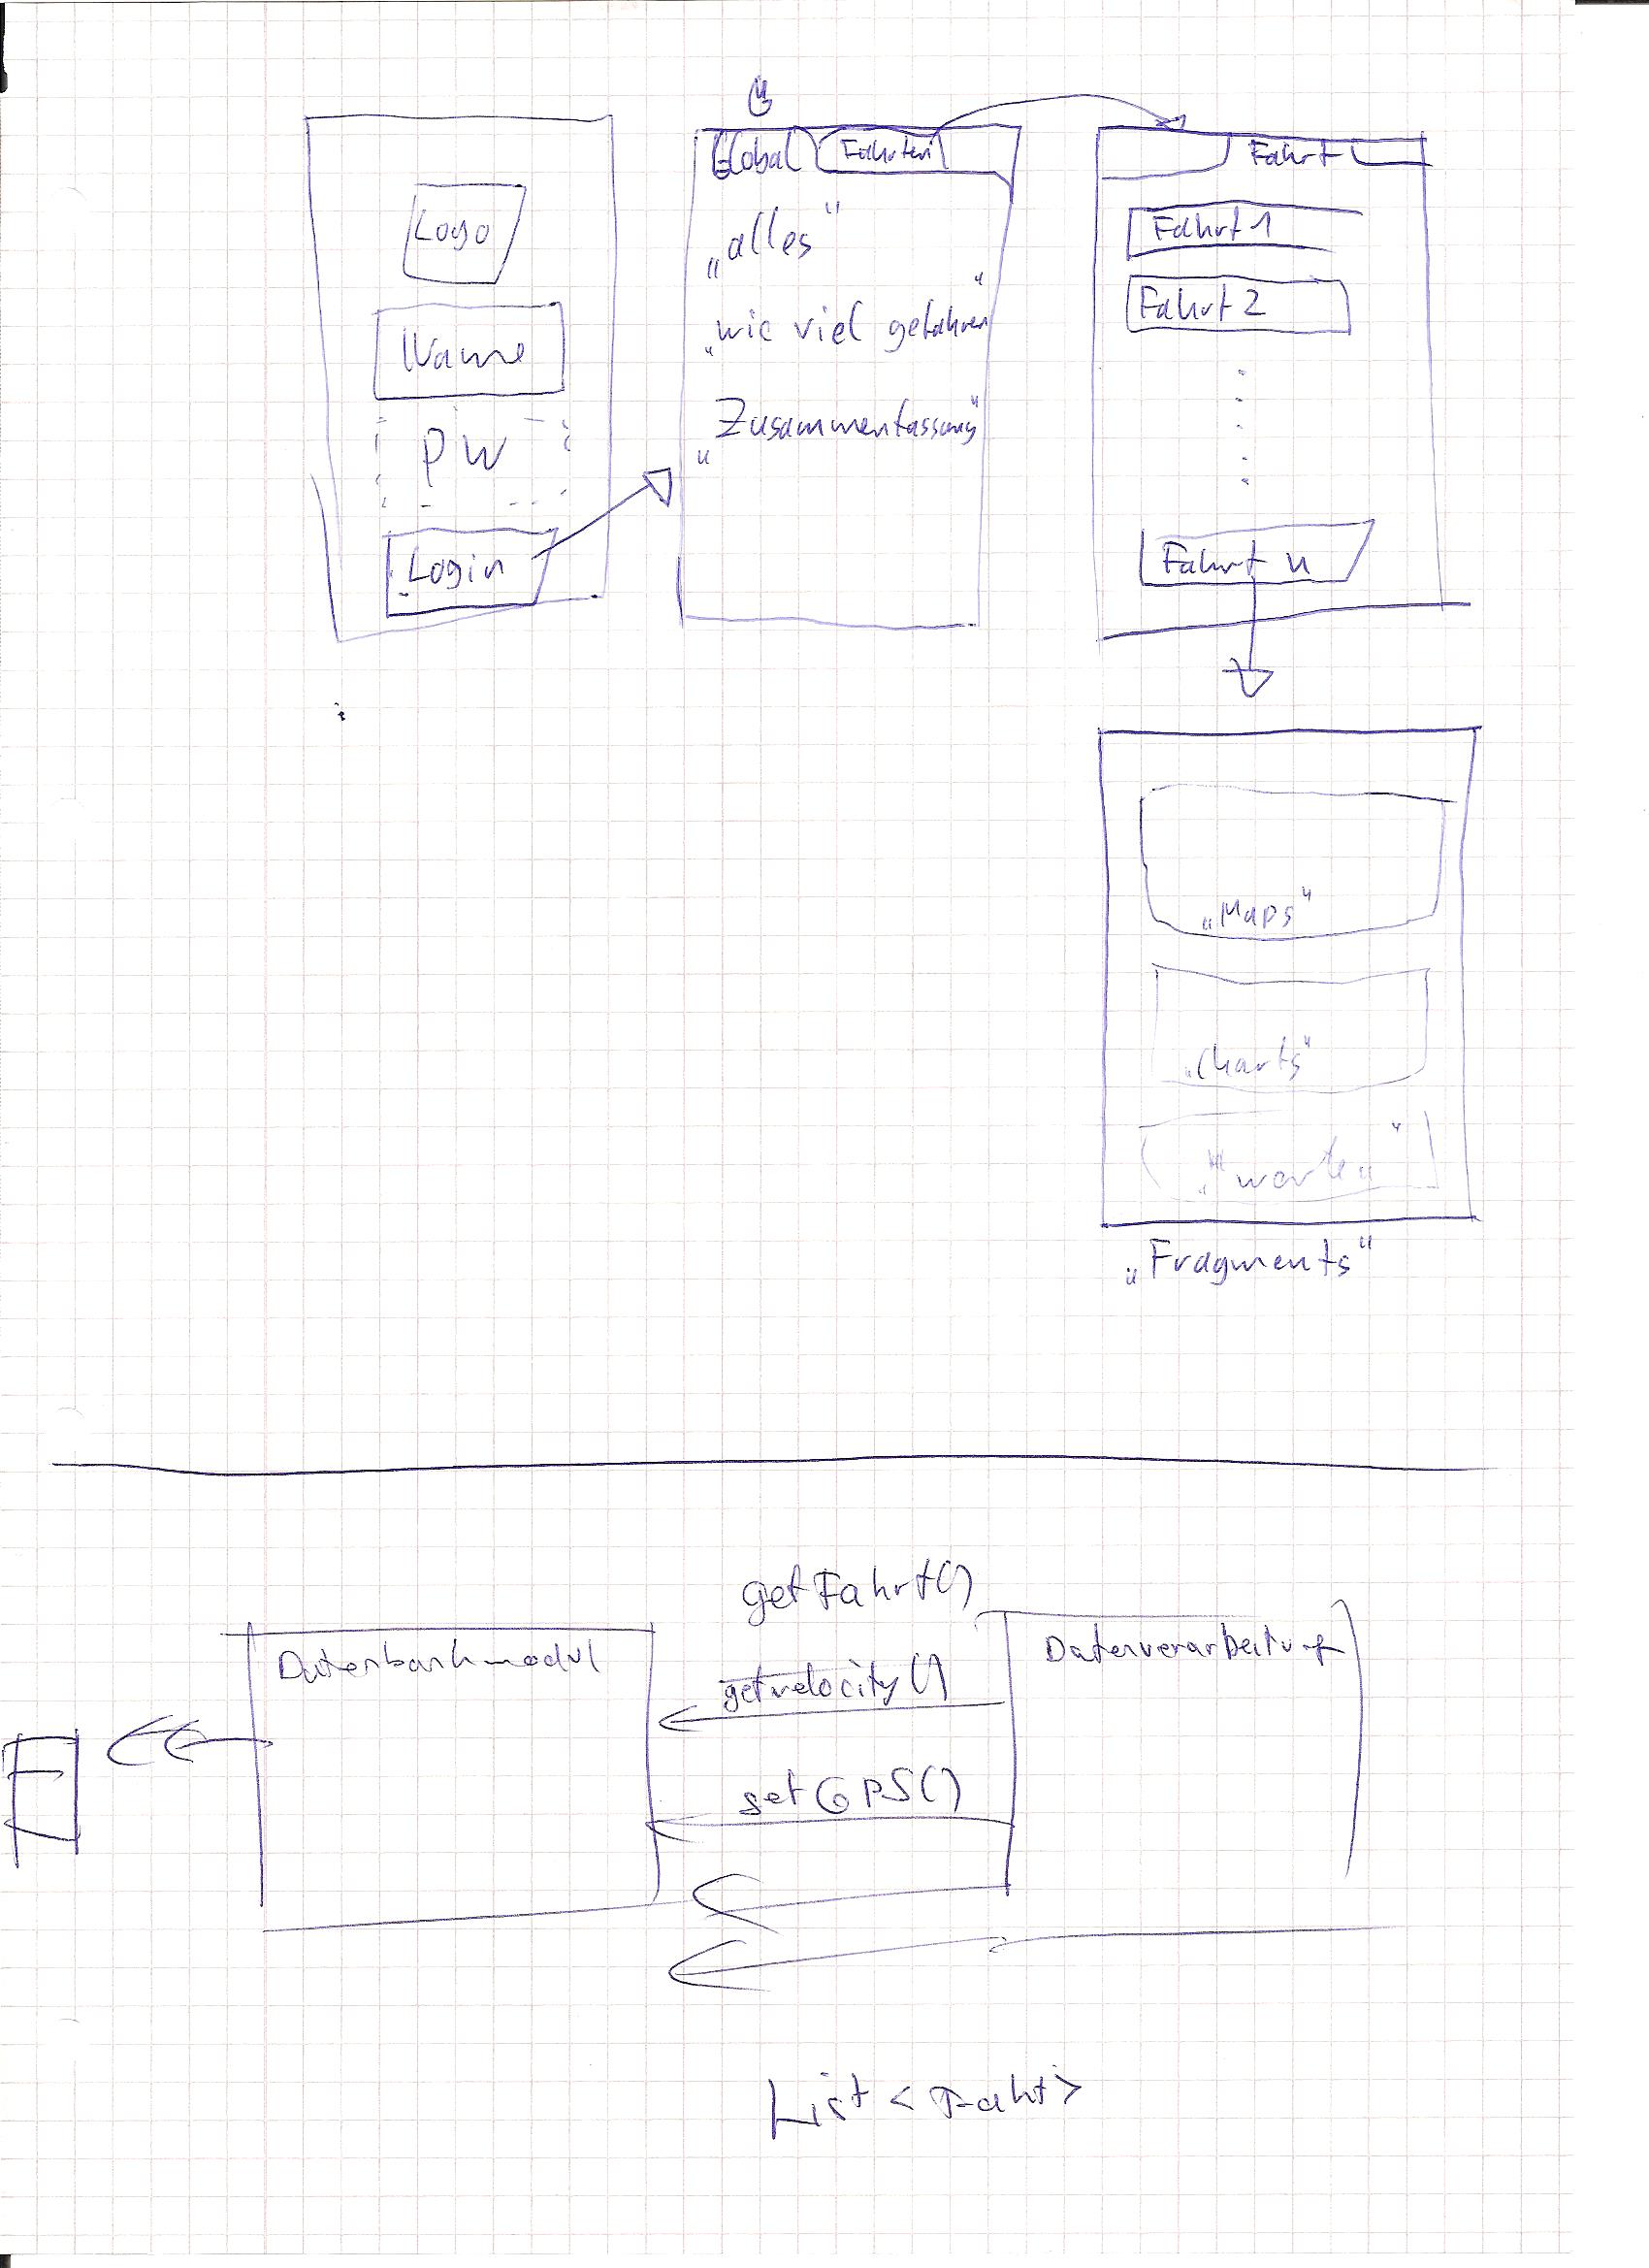 Logo
Name
PW
Login
Global Fahrten
„alles"
„wie viel gefahren"
„Zusammenfassung"
Fahrt
Fahrt 1
Fahrt 2
Fahrt n
„Maps"
„Charts"
„Fragments"
getFahrt()
Datenbankmodul
Datenverarbeitung
getvelocity()
setGPS()
List <Fahrt>